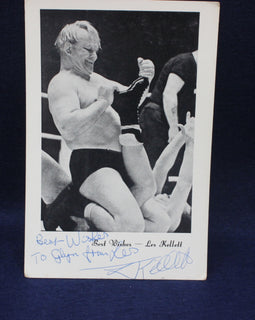 Best Wishes — Les Kellett
Best-Wishes
To Glyn from Les
Kellett